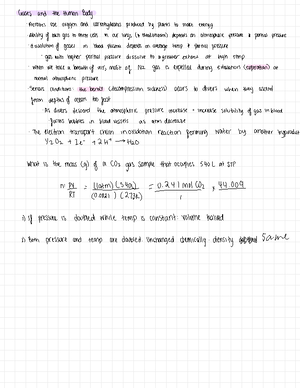 Gases and the Human Body:
· Animals use oxygen and carbohydrates produced by plants to make energy
ability of each gas to cross cells in our lungs, (& circulations) depends on atmospheric pressure & partial pressure
· evolution of gases in blood plasma depends on average temp & partial pressure
· gas with higher partial pressure dissolve to a greater extent at high temp
· when we take a breath of air, most of N₂ gas is expelled during exhalation (expiration) at normal atmospheric pressure
· Serious conditions: the bends (decompression sickness) occurs to divers when they ascend from depths of ocean too fast
· As divers descend the atmospheric pressure increase = increase solubility of gas in blood
forms bubbles in blood vessels as they decrease
· The electron transport chain is oxidation reaction forming water by
½ O₂ + 2e⁻ + 2H⁺ → H₂O
What is the mass (g) of a CO₂ gas sample that occupies 5.40 L at STP
n PV/RT = (1atm)(5.40L)/(0.0821)(273K) = 0.241 mol CO₂/1 × 44.009
if pressure is doubled while temp is constant: volume halved
when pressure and temp are doubled unchanged chemically density same